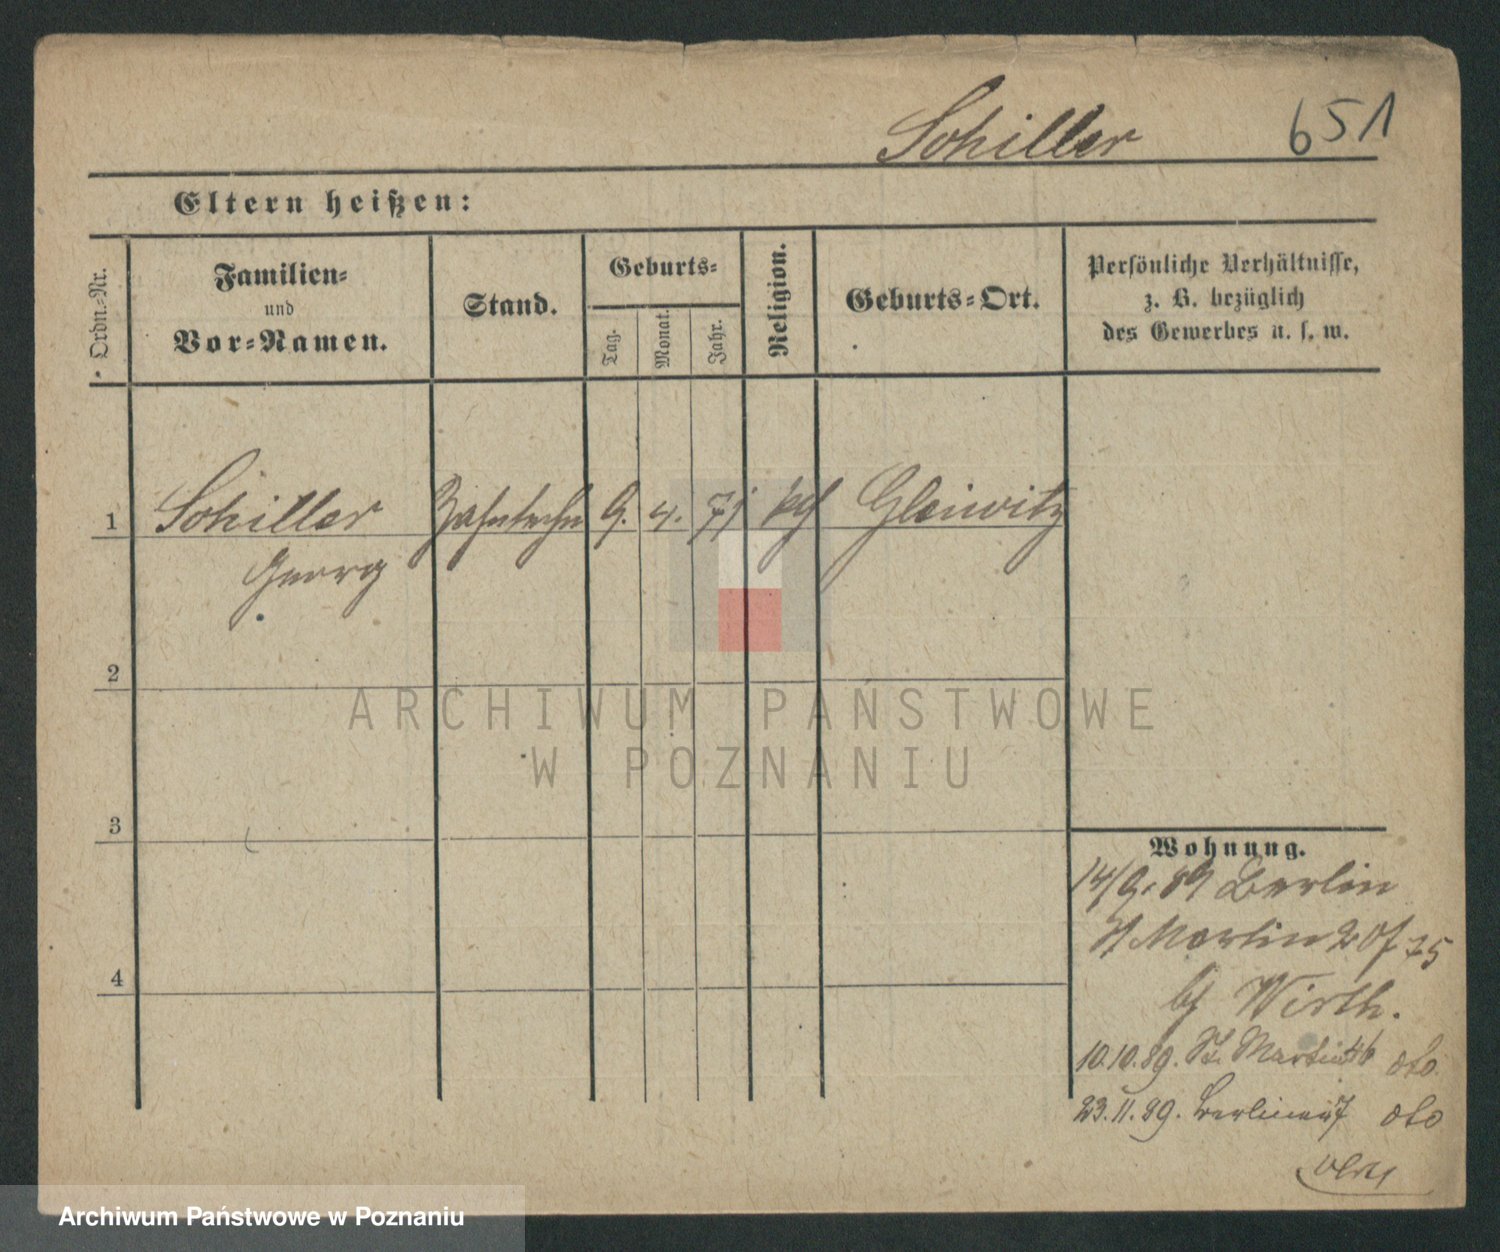 Schiller 651
Eltern heißen:
Ordn.-Nr.
Familien-
und
Vor-Namen.
Stand.
Geburts-
Tag.
Monat.
Jahr.
Religion.
Geburts-Ort.
Persönliche Verhältnisse,
z. B. bezüglich
des Gewerbes u. s. w.
1 Schiller Zahntechn 9. 4. 71 kgl Gleiwitz
Georg
2
3
4
ARCHIWUM PAŃSTWOWE
W POZNANIU
Wohnung.
14/9. 89 Berlin
St Martin 20
bei Wirth.
10.10.89. St. Martin
23.11.89. Berliner
Archiwum Państwowe w Poznaniu